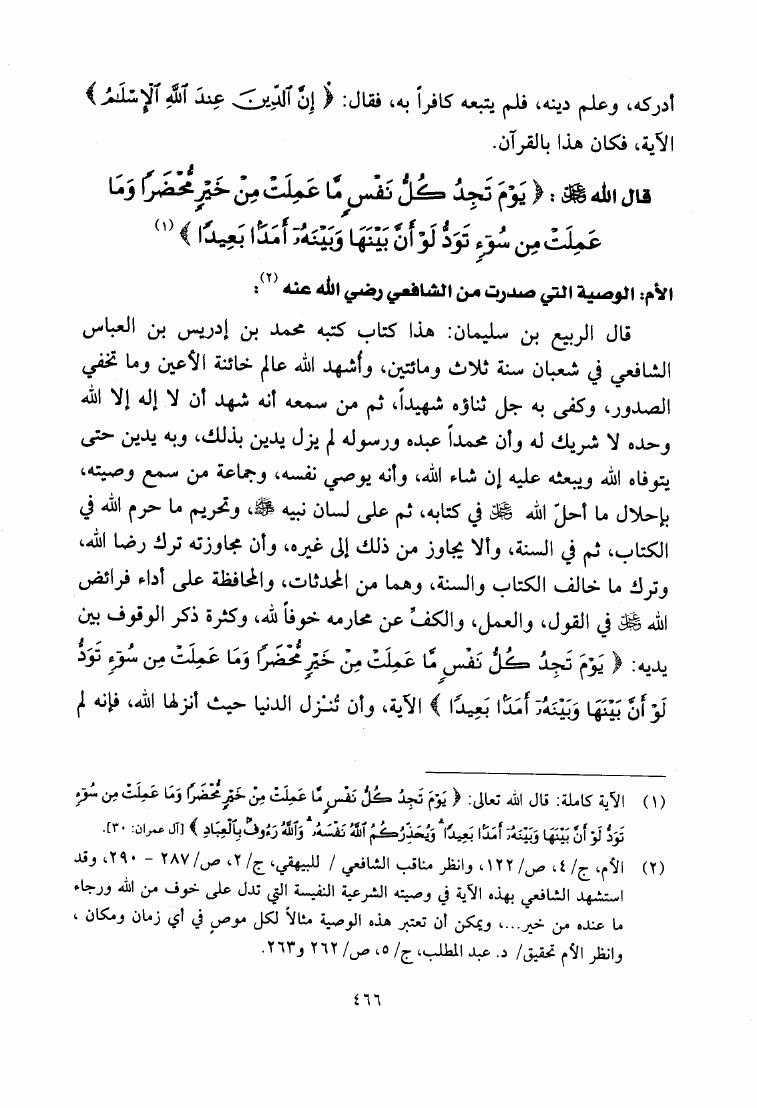 أدركه، وعلم دينه، فلم يتبعه كافراً به، فقال: ﴿ إِنَّ الدِّينَ عِندَ اللَّهِ الْإِسْلَامُ ﴾
الآية، فكان هذا بالقرآن.
قال الله ﷻ : ﴿ يَوْمَ تَجِدُ كُلُّ نَفْسٍ مَّا عَمِلَتْ مِنْ خَيْرٍ مُّحْضَرًا وَمَا
عَمِلَتْ مِن سُوٓءٍ تَوَدُّ لَوْ أَنَّ بَيْنَهَا وَبَيْنَهُۥٓ أَمَدًۢا بَعِيدًا ﴾ (١)
الأم: الوصية التي صدرت من الشافعي رضي الله عنه (٢):
قال الربيع بن سليمان: هذا كتاب كتبه محمد بن إدريس بن العباس
الشافعي في شعبان سنة ثلاث ومائتين، وأشهد الله عالم خائنة الأعين وما تخفي
الصدور، وكفى به جل ثناؤه شهيداً، ثم من سمعه أنه شهد أن لا إله إلا الله
وحده لا شريك له وأن محمداً عبده ورسوله لم يزل يدين بذلك، وبه يدين حتى
يتوفاه الله ويبعثه عليه إن شاء الله، وأنه يوصي نفسه، وجماعة من سمع وصيته،
بإحلال ما أحلّ الله ﷻ في كتابه، ثم على لسان نبيه ﷺ، وتحريم ما حرم الله في
الكتاب، ثم في السنة، وألا يجاوز من ذلك إلى غيره، وأن مجاوزته ترك رضا الله،
وترك ما خالف الكتاب والسنة، وهما من المحدثات، والمحافظة على أداء فرائض
الله ﷻ في القول، والعمل، والكفّ عن محارمه خوفاً لله، وكثرة ذكر الوقوف بين
يديه: ﴿ يَوْمَ تَجِدُ كُلُّ نَفْسٍ مَّا عَمِلَتْ مِنْ خَيْرٍ مُّحْضَرًا وَمَا عَمِلَتْ مِن سُوٓءٍ تَوَدُّ
لَوْ أَنَّ بَيْنَهَا وَبَيْنَهُۥٓ أَمَدًۢا بَعِيدًا ﴾ الآية، وأن تُنـزل الدنيا حيث أنزلها الله، فإنه لم
(١) الآية كاملة: قال الله تعالى: ﴿ يَوْمَ تَجِدُ كُلُّ نَفْسٍ مَّا عَمِلَتْ مِنْ خَيْرٍ مُّحْضَرًا وَمَا عَمِلَتْ مِن سُوٓءٍ
تَوَدُّ لَوْ أَنَّ بَيْنَهَا وَبَيْنَهُۥٓ أَمَدًۢا بَعِيدًا ۗ وَيُحَذِّرُكُمُ اللَّهُ نَفْسَهُۥ ۗ وَاللَّهُ رَءُوفٌۢ بِالْعِبَادِ ﴾ [آل عمران: ٣٠].
(٢) الأم، ج/٤، ص/١٢٢، وانظر مناقب الشافعي / للبيهقي، ج/٢، ص/٢٨٧ - ٢٩٠، وقد
استشهد الشافعي بهذه الآية في وصيته الشرعية النفيسة التي تدل على خوف من الله ورجاء
ما عنده من خير...، ويمكن أن تعتبر هذه الوصية مثالاً لكل موصٍ في أي زمان ومكان ،
وانظر الأم تحقيق/ د. عبد المطلب، ج/٥، ص/٢٦٢ و٢٦٣.
٤٦٦